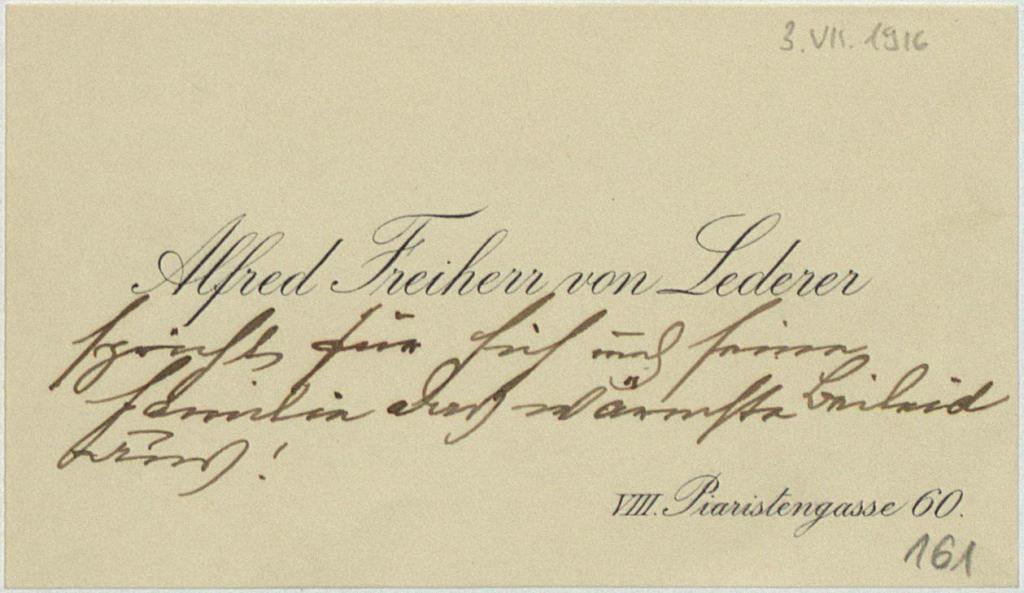 3. VII. 1916
Alfred Freiherr von Lederer
spricht für sich und seine
Familie das wärmste Beileid
aus!
VIII. Piaristengasse 60.
161